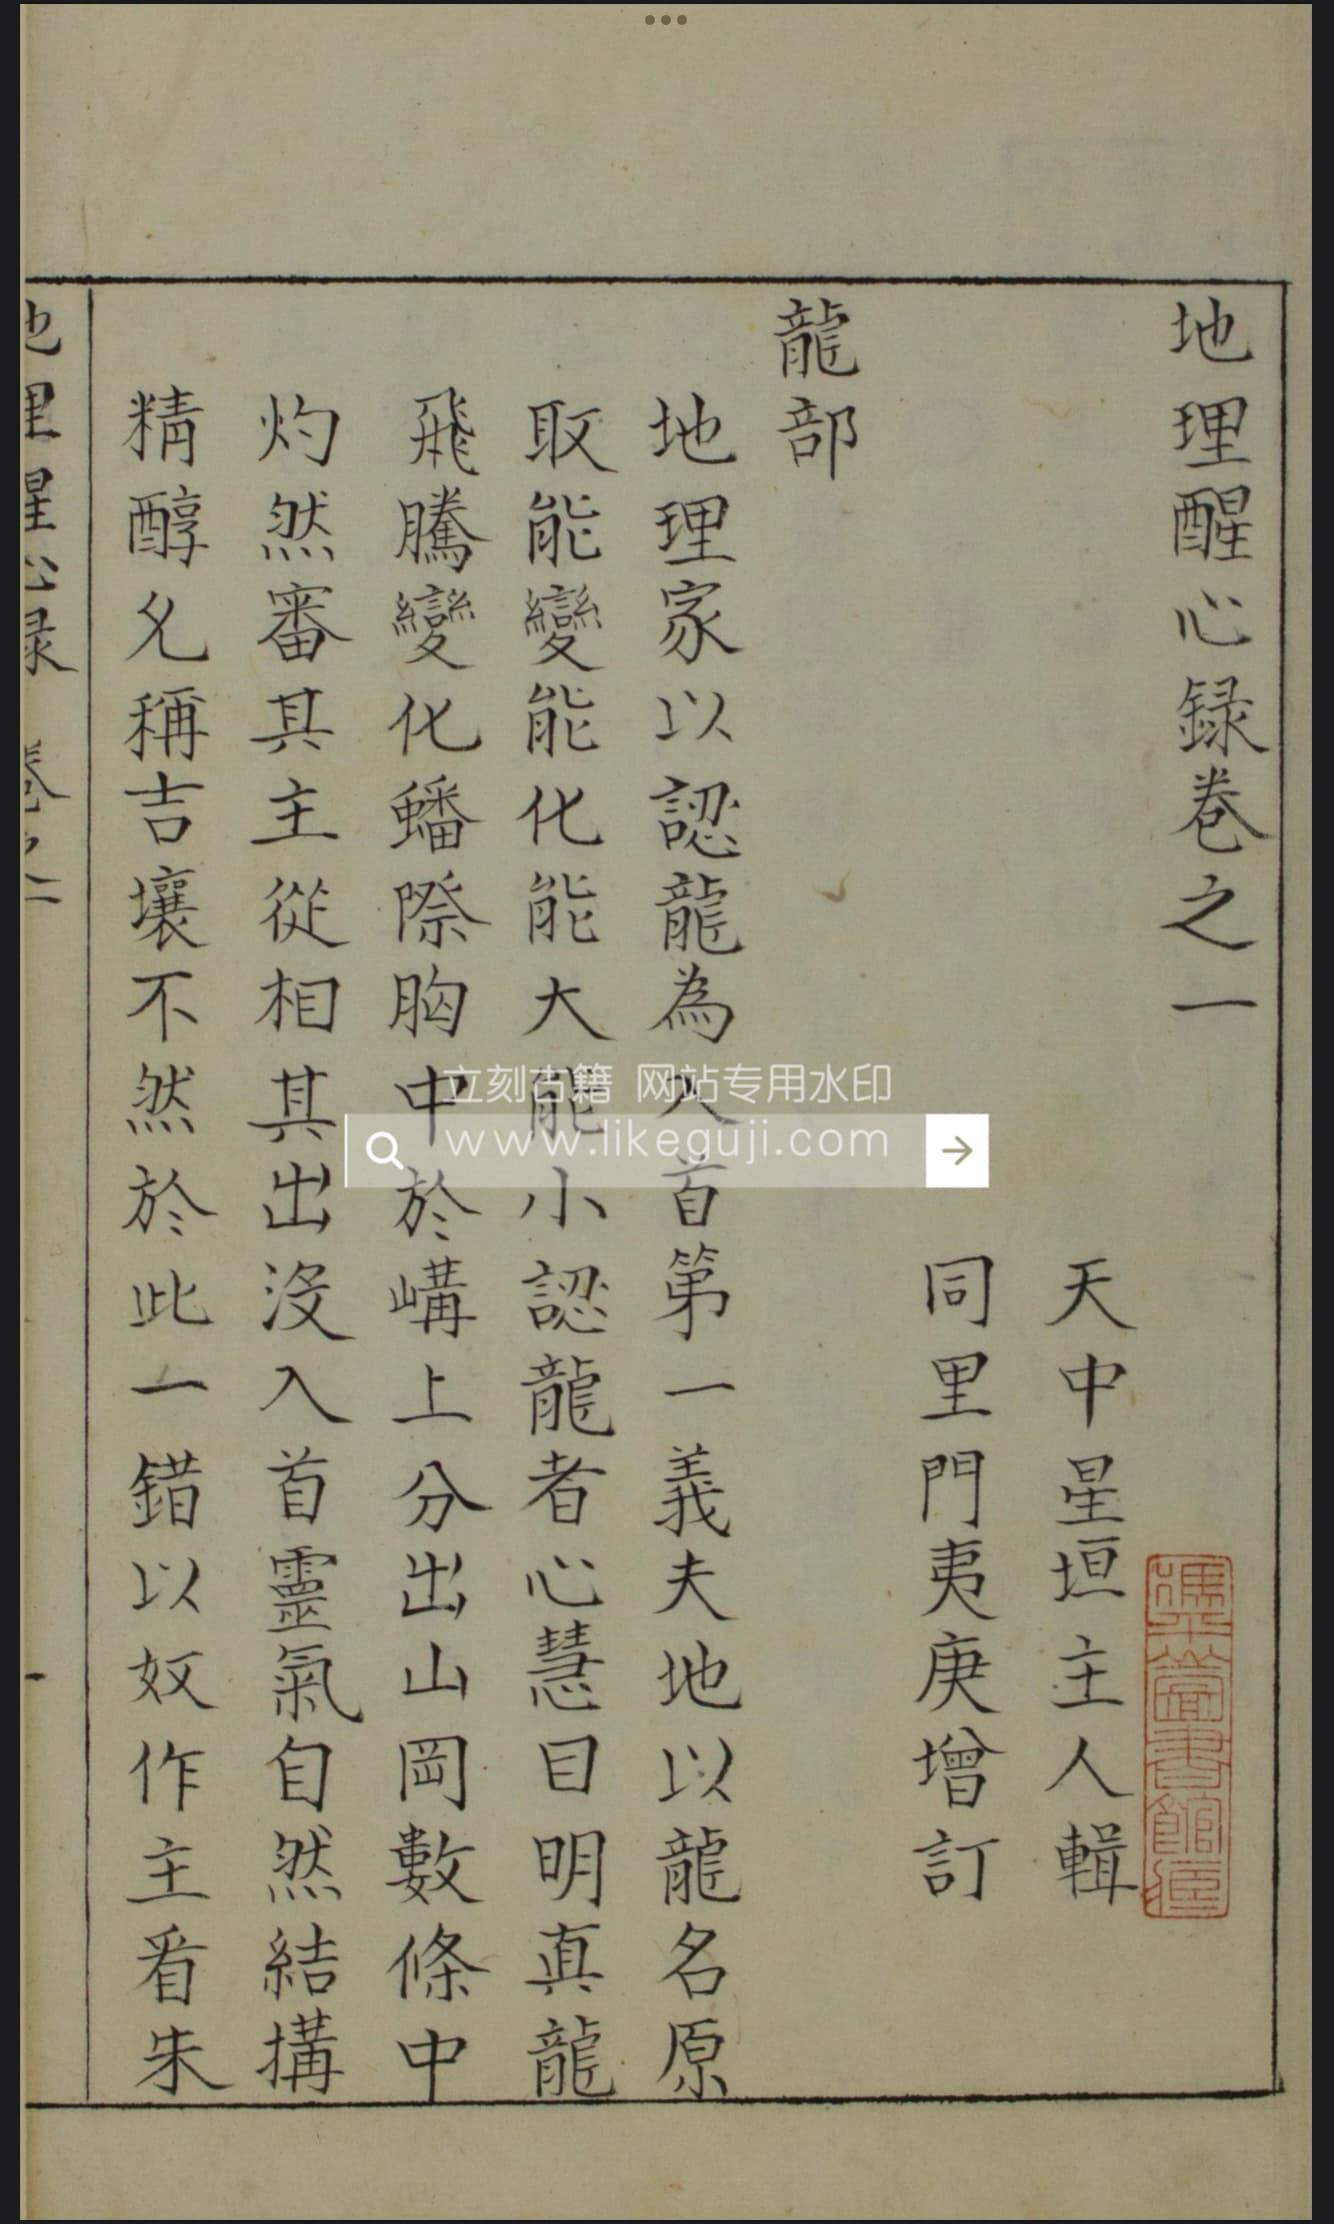 地理醒心録卷之一
天中星垣主人輯
同里門夷庚增訂
龍部
地理家以認龍為入首第一義夫地以龍名原
取能變能化能大能小認龍者心慧目明真龍
飛騰變化蟠際胸中於嶹上分出山岡數條中
灼然審其主從相其出没入首靈氣自然結搆
精醇久稱吉壤不然於此一錯以奴作主看朱
地理醒心録 卷之一
一
立刻古籍 网站专用水印
www.likeguji.com